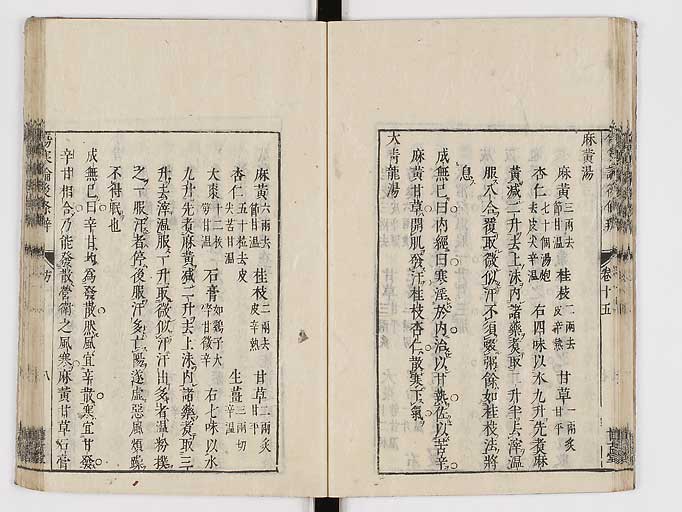 麻黃湯
麻黃三兩去節甘溫 桂枝二兩去皮辛熱 甘草一兩炙甘平
杏仁七十個湯炮去皮尖辛溫 右四味以水九升先煮麻
黃減二升去上沫內諸藥煮取二升半去滓溫
服八合覆取微似汗不須啜粥餘如桂枝法將
息
成無已曰內經曰寒淫於內治以甘熱佐以苦辛
麻黃甘草開肌發汗桂枝杏仁散寒下氣
大青龍湯
麻黃六兩去節甘溫 桂枝二兩去皮辛熱 甘草二兩炙甘平
杏仁五十粒去皮尖苦甘溫 生薑三兩切辛溫
大棗十二枚擘甘溫 石膏如鷄子大碎甘微辛 右七味以水
九升先煮麻黃減二升去上沫內諸藥煮取三
升去滓溫服一升取微似汗汗出多者溫粉撲
之一服汗者停後服汗多亡陽遂虛惡風煩躁
不得眠也
成無已曰辛甘均為發散然風宜辛散寒宜甘發
辛甘相合乃能發散營衛之風寒麻黃甘草石膏
卷十五
方
八